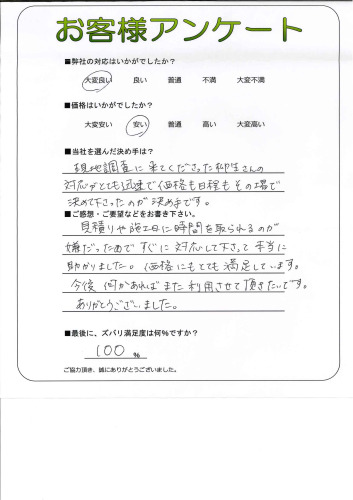 お客様アンケート
■弊社の対応はいかがでしたか?
大変良い 良い 普通 不満 大変不満
■価格はいかがでしたか?
大変安い 安い 普通 高い 大変高い
■当社を選んだ決め手は?
現地調査に来てくださった柳生さんの
対応がとても迅速で価格も日程もその場で
決めて下さったのが決め手です。
■ご感想・ご要望などをお書き下さい。
見積りや施工日に時間を取られるのが
嫌だったのですぐに対応して下さって本当に
助かりました。価格にもとても満足しています。
今後何かあればまた利用させて頂きたいです。
ありがとうございました。
■最後に、ズバリ満足度は何%ですか?
100 %
ご協力頂き、誠にありがとうございました。